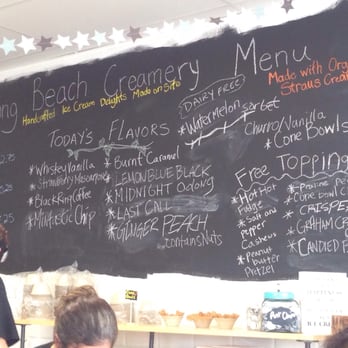 ng Beach Creamery Menu
Handcrafted Ice Cream Delights Made on Site
Made with Org
Straus Crea
TODAY'S FLAVORS
*Whiskey Vanilla
*Strawberry
*Black Ring Coffee
*Mintastic Chip
*Burnt Caramel
*LEMON BLUE BLACK
*MIDNIGHT
*LAST CALL
*GINGER PEACH
*contains Nuts
DAIRY FREE
*Watermelon Sorbet
Churro/Vanilla
*Cone Bowls
Free TOPPING
*Hot Hot
Fudge
*Salt and
Pepper
Cashews
*Peanut
butter
Pretzel
*Praline Pe
*CRISPE
*GRAHAM CR
*CANDIED